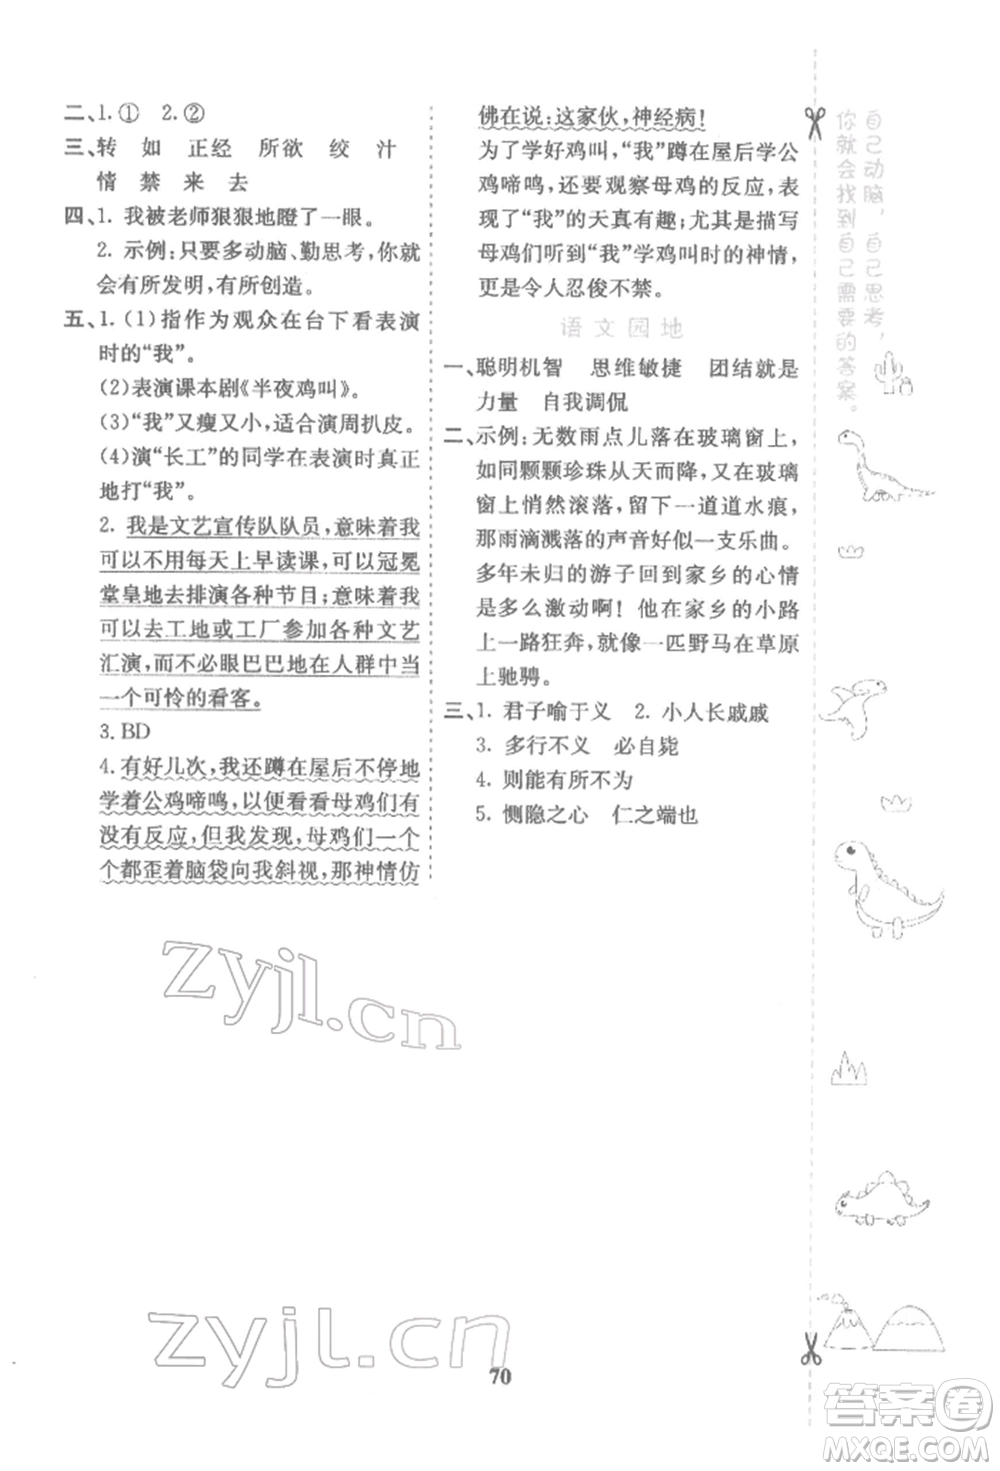 二、1.① 2.②
三、转 如 正经 所欲 绞 汁
情 禁 来 去
四、1. 我被老师狠狠地瞪了一眼。
2. 示例:只要多动脑、勤思考,你就
会有所发明,有所创造。
五、1.(1)指作为观众在台下看表演
时的“我”。
(2)表演课本剧《半夜鸡叫》。
(3)“我”又瘦又小,适合演周扒皮。
(4)演“长工”的同学在表演时真正
地打“我”。
2. 我是文艺宣传队队员,意味着我
可以不用每天上早读课,可以冠冕
堂皇地去排演各种节目;意味着我
可以去工地或工厂参加各种文艺
汇演,而不必眼巴巴地在人群中当
一个可怜的看客。
3. BD
4. 有好几次,我还蹲在屋后不停地
学着公鸡啼鸣,以便看看母鸡们有
没有反应,但我发现,母鸡们一个
个都歪着脑袋向我斜视,那神情仿
佛在说:这家伙,神经病!
为了学好鸡叫,“我”蹲在屋后学公
鸡啼鸣,还要观察母鸡的反应,表
现了“我”的天真有趣;尤其是描写
母鸡们听到“我”学鸡叫时的神情,
更是令人忍俊不禁。
语文园地
一、聪明机智 思维敏捷 团结就是
力量 自我调侃
二、示例:无数雨点儿落在玻璃窗上,
如同颗颗珍珠从天而降,又在玻璃
窗上悄然滚落,留下一道道水痕,
那雨滴溅落的声音好似一支乐曲。
多年未归的游子回到家乡的心情
是多么激动啊!他在家乡的小路
上一路狂奔,就像一匹野马在草原
上驰骋。
三、1. 君子喻于义 2. 小人长戚戚
3. 多行不义 必自毙
4. 则能有所不为
5. 恻隐之心 仁之端也
自己动脑,自己思考,
你就会找到自己需要的答案。
zyjl.cn
zyjl.cn
70
答案卷
MXQE.COM